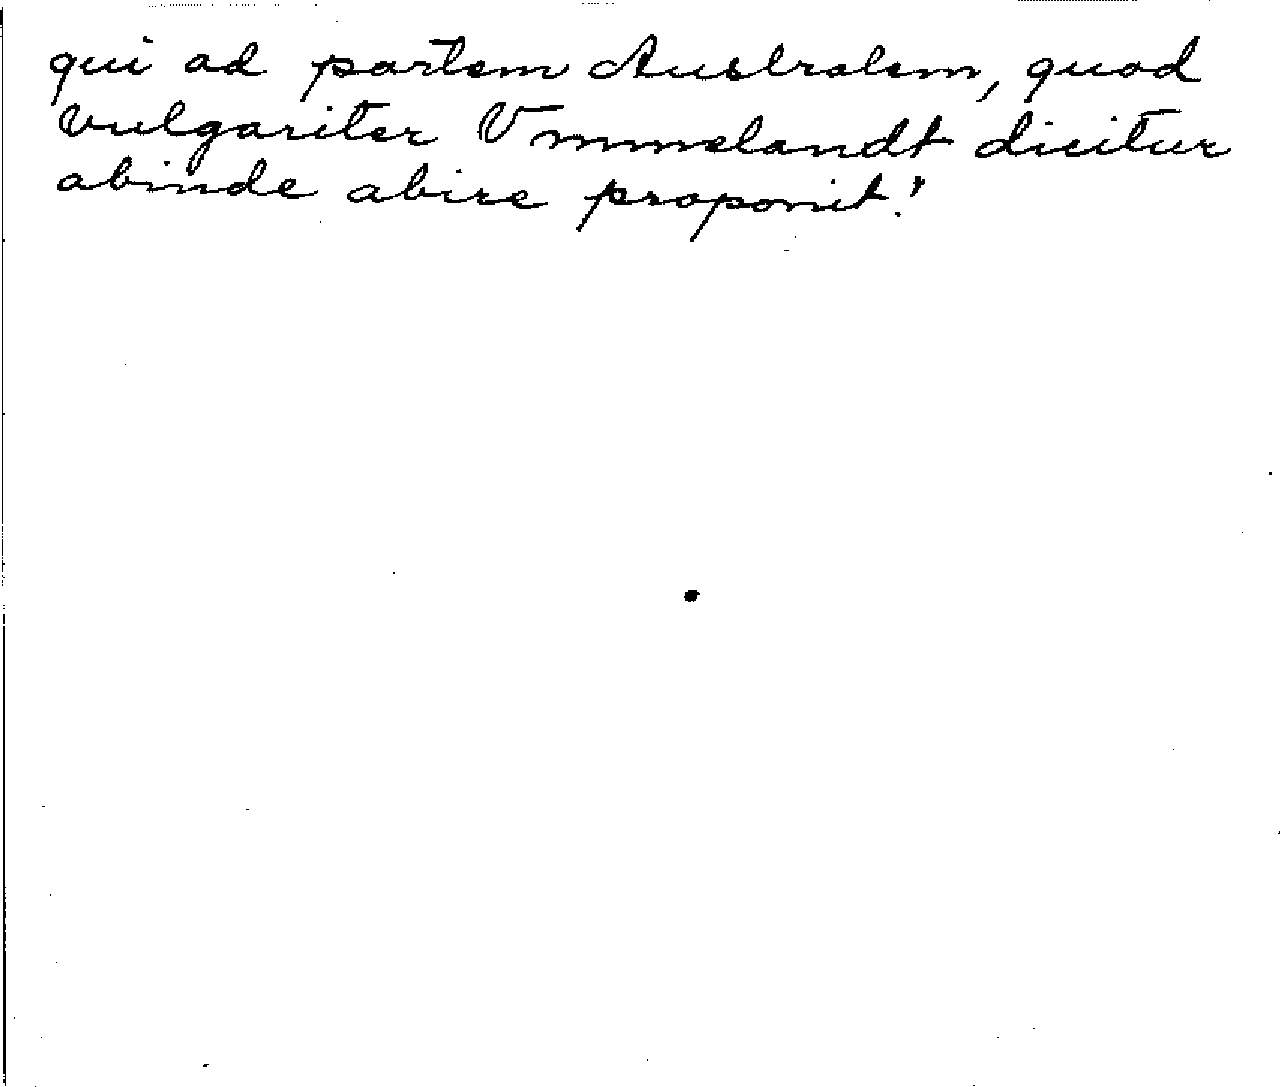 qui ad partem Australem, quod
vulgariter Vmmelandt dicitur
abinde abire proponit."